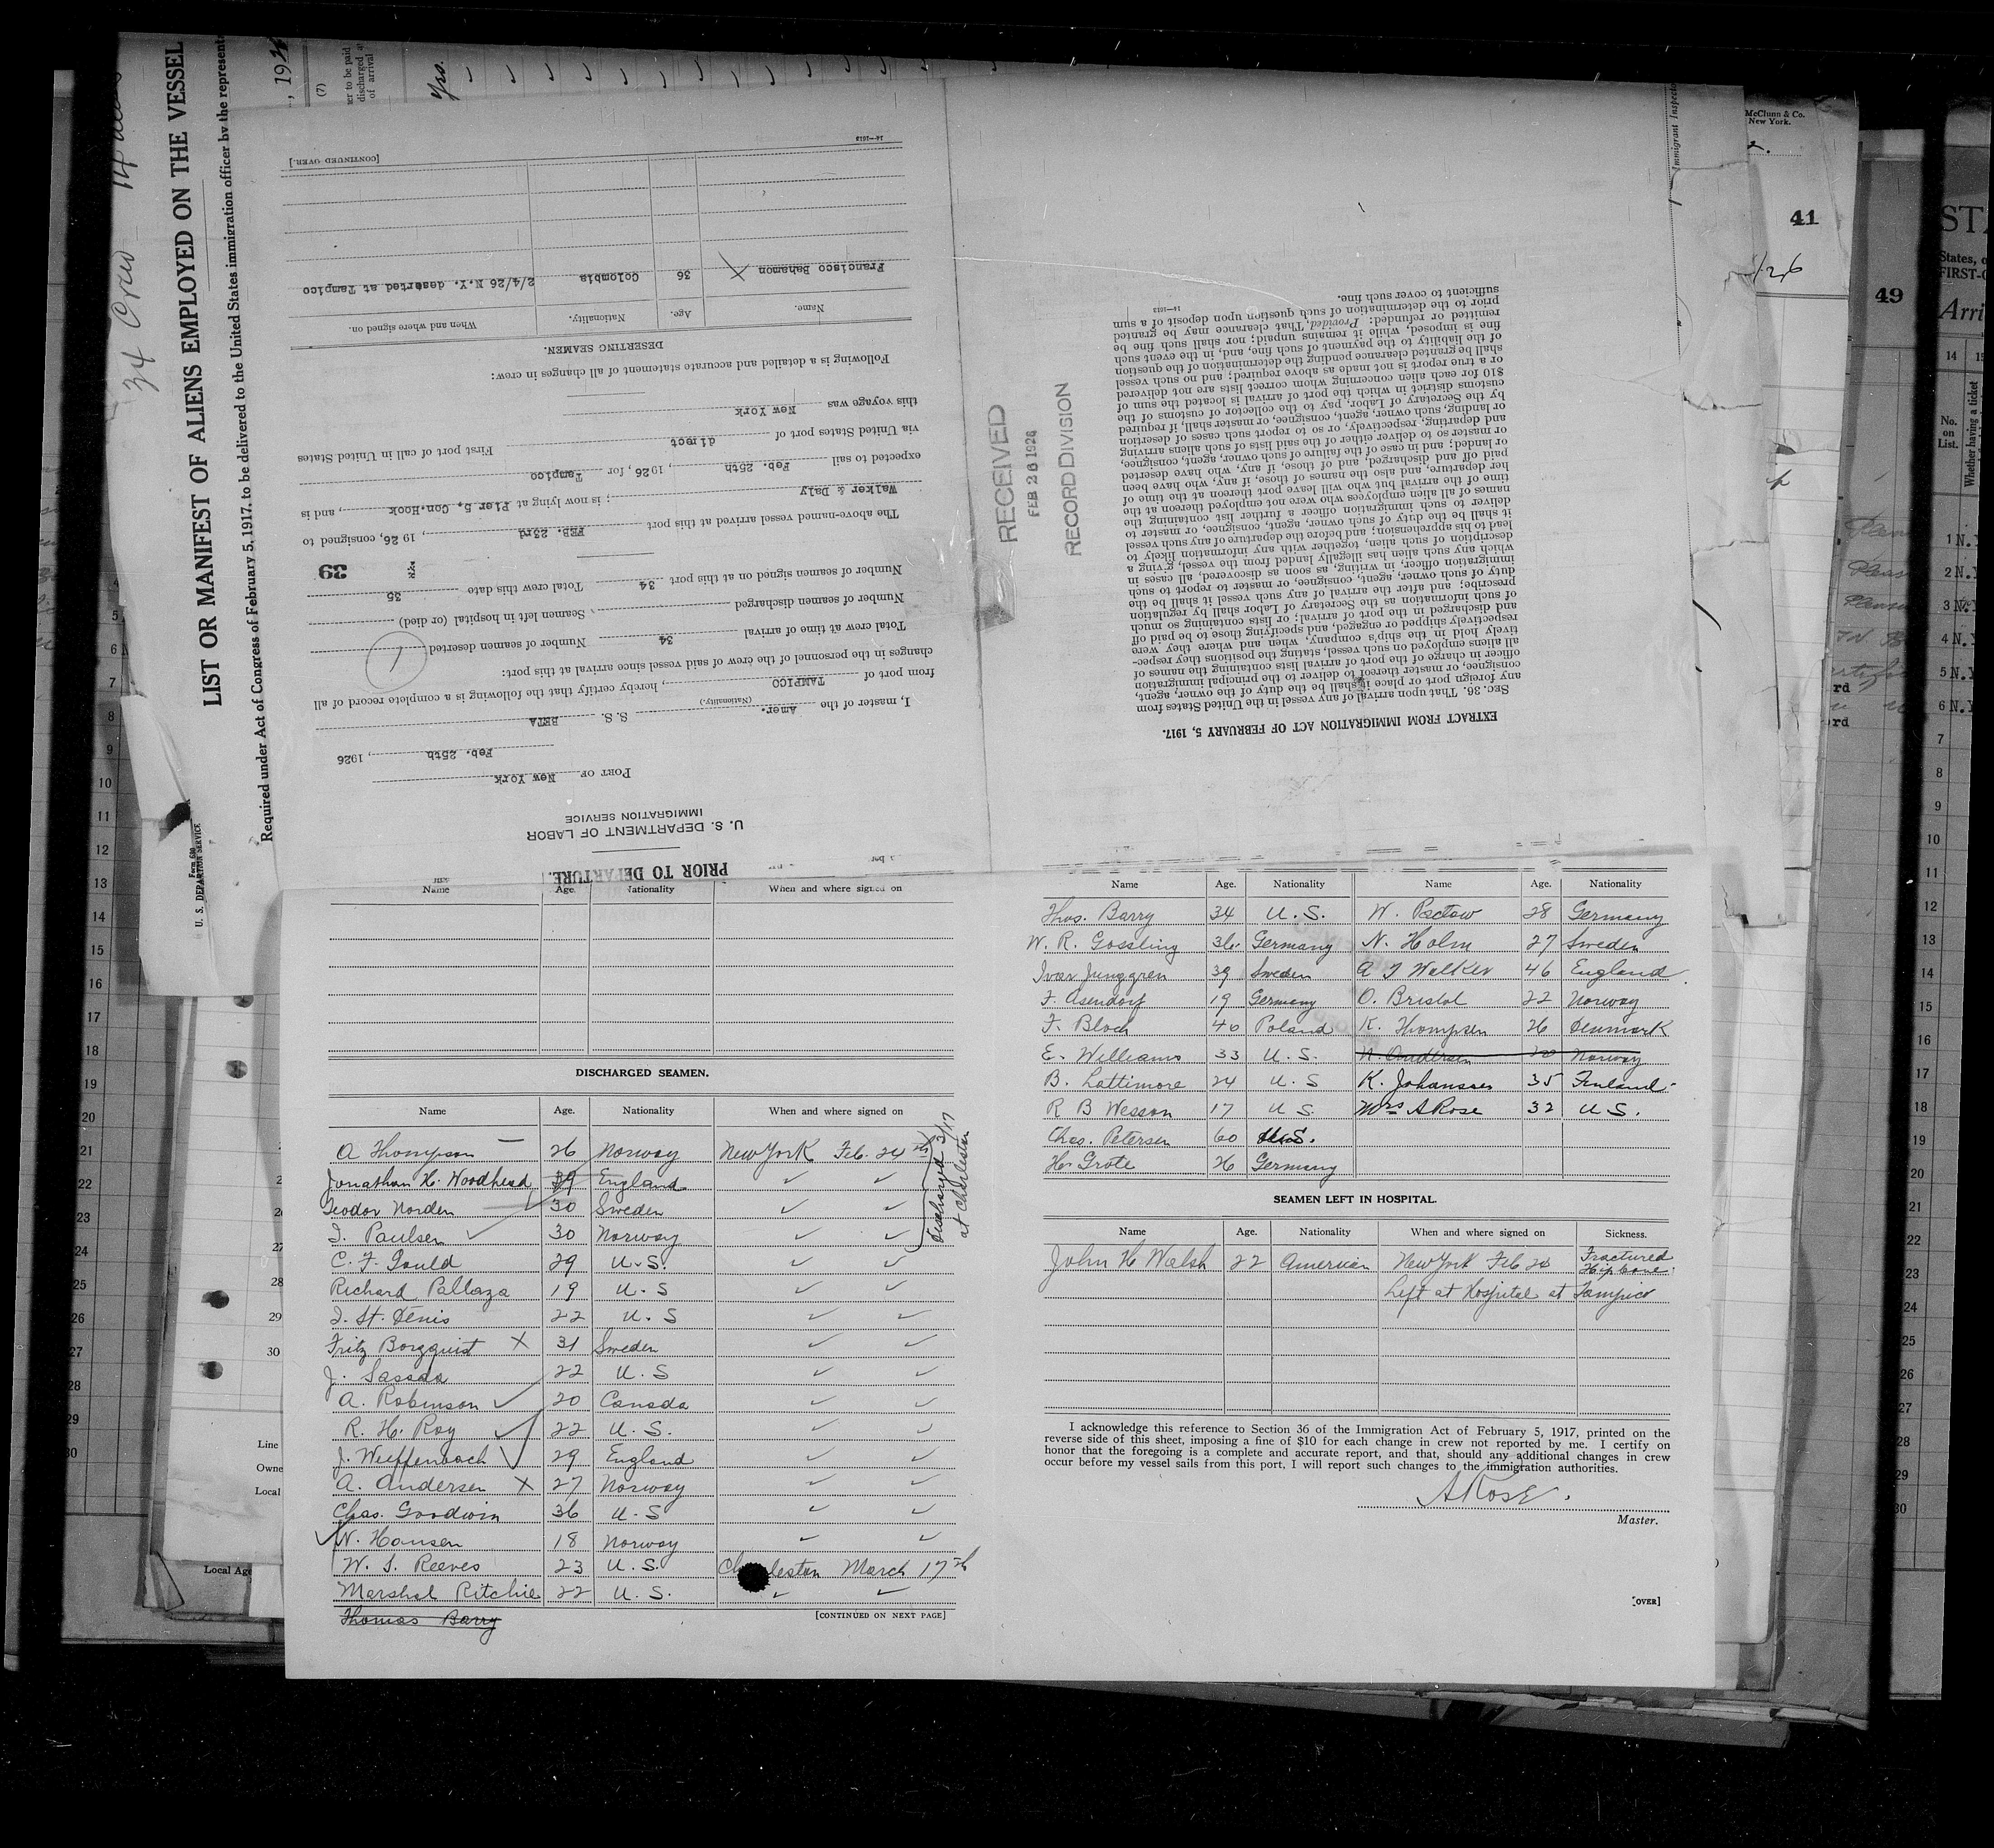 34 Crew
LIST OR MANIFEST OF ALIENS EMPLOYED ON THE VESSEL
Required under Act of Congress of February 5, 1917, to be delivered to the United States immigration officer by the represent
Form 680
U. S. DEPARTMENT
, 192
(7)
discharged
of arrival
Yrs.
PRIOR TO DEPARTURE.
U. S. DEPARTMENT OF LABOR
IMMIGRATION SERVICE
PORT OF New York
Feb. 25th, 1926
I, master of the Amer. S. S. BETA
(Nationality.)
from port of TAMPICO, hereby certify that the following is a complete record of all
changes in the personnel of the crew of said vessel since arrival at this port:
Total crew at time of arrival 34 Number of seamen deserted 1
Number of seamen discharged Seamen left in hospital (or died)
Number of seamen signed on at this port 34 Total crew this date 35
39
The above-named vessel arrived at this port FEB. 23rd, 1926, consigned to
Walker & Daly; is now lying at Pier 5, Con. Hook, and is
expected to sail Feb. 25th, 1926, for Tampico
via United States port of direct First port of call in United States
this voyage was New York
Following is a detailed and accurate statement of all changes in crew:
DESERTING SEAMEN.
Name. Age. Nationality. When and where signed on.
Francisco Bahamon X 36 Colombia 2/4/26 N.Y. deserted at Tampico
[CONTINUED OVER.]
14—1613
EXTRACT FROM IMMIGRATION ACT OF FEBRUARY 5, 1917.
SEC. 36. That upon arrival of any vessel in the United States from
any foreign port or place it shall be the duty of the owner, agent,
consignee, or master thereof to deliver to the principal immigration
officer in charge of the port of arrival lists containing the names of
all aliens employed on such vessel, stating the positions they respec-
tively hold in the ship's company, when and where they were
respectively shipped or engaged, and specifying those to be paid off
and discharged in the port of arrival; or lists containing so much
of such information as the Secretary of Labor shall by regulation
prescribe; and after the arrival of any such vessel it shall be the
duty of such owner, agent, consignee, or master to report to such
immigration officer, in writing, as soon as discovered, all cases in
which any such alien has illegally landed from the vessel, giving a
description of such alien, together with any information likely to
lead to his apprehension; and before the departure of any such vessel
it shall be the duty of such owner, agent, consignee, or master to
deliver to such immigration officer a further list containing the
names of all alien employees who were not employed thereon at the
time of the arrival but who will leave port thereon at the time of
her departure, and also the names of those, if any, who have been
paid off and discharged, and of those, if any, who have deserted
or landed; and in case of the failure of such owner, agent, consignee,
or master so to deliver either of the said lists of such aliens arriving
and departing, respectively, or so to report such cases of desertion
or landing, such owner, agent, consignee, or master shall, if required
by the Secretary of Labor, pay to the collector of customs of the
customs district in which the port of arrival is located the sum of
$10 for each alien concerning whom correct lists are not delivered
or a true report is not made as above required; and no such vessel
shall be granted clearance pending the determination of the question
of the liability to the payment of such fine, and, in the event such
fine is imposed, while it remains unpaid; nor shall such fine be
remitted or refunded: Provided, That clearance may be granted
prior to the determination of such question upon deposit of a sum
sufficient to cover such fine.
14—1613
RECEIVED
FEB 26 1926
RECORD DIVISION
Immigrant Inspector
McClunn & Co.
New York.
41
49
Name Age. Nationality When and where signed on
DISCHARGED SEAMEN.
Name Age. Nationality When and where signed on
A Thompson 26 Norway New York Feb. 24th
Jonathan H. Woodhead 39 England ✓ ✓
Teodor Norden 30 Sweden ✓ ✓
I. Paulsen ✓ 30 Norway ✓ ✓
Discharged 3/17
at Charleston
C. F. Gould 29 U.S. ✓ ✓
Richard Pallaza 19 U.S ✓ ✓
I. St. Denis 22 U.S ✓ ✓
Fritz Borgquist X 31 Sweden ✓ ✓
J. Sassda 22 U.S ✓ ✓
A. Robinson ✓ 20 Canada ✓ ✓
R. H. Roy ✓ 22 U.S. ✓ ✓
J. Weiffenbach ✓ 29 England ✓ ✓
A. Andersen X 27 Norway ✓ ✓
Chas. Goodwin 36 U.S ✓ ✓
✓ N. Hansen 18 Norway ✓ ✓
W. S. Reeves 23 U.S. Charleston March 17th
Marshal Ritchie 22 U.S. ✓ ✓
Thomas Barry
[CONTINUED ON NEXT PAGE]
Name Age. Nationality Name Age. Nationality
Thos. Barry 34 U.S. W. Pactow 28 Germany
W. R. Gossling 36 Germany N. Holm 27 Sweden
Ivar Junggren 39 Sweden A J Walker 46 England
F. Asendorf 19 Germany O. Bristol 22 Norway
F. Bloch 40 Poland K. Thompsen 26 Denmark
E. Williams 33 U.S. N. Andersen 20 Norway
B. Lattimore 24 U.S K. Johanssen 35 Finland
R B Wesson 17 U.S. Mrs A Rose 32 U.S.
Chas. Petersen 60 U.S.
H. Grote 26 Germany
SEAMEN LEFT IN HOSPITAL.
Name Age. Nationality When and where signed on Sickness.
John H Walsh 22 American New York Feb 24 Fractured Hip bone
Left at Hospital at Tampico
I acknowledge this reference to Section 36 of the Immigration Act of February 5, 1917, printed on the
reverse side of this sheet, imposing a fine of $10 for each change in crew not reported by me. I certify on
honor that the foregoing is a complete and accurate report, and that, should any additional changes in crew
occur before my vessel sails from this port, I will report such changes to the immigration authorities.
A Rose.
Master.
[OVER]
Line
Owne
Local
Local Age